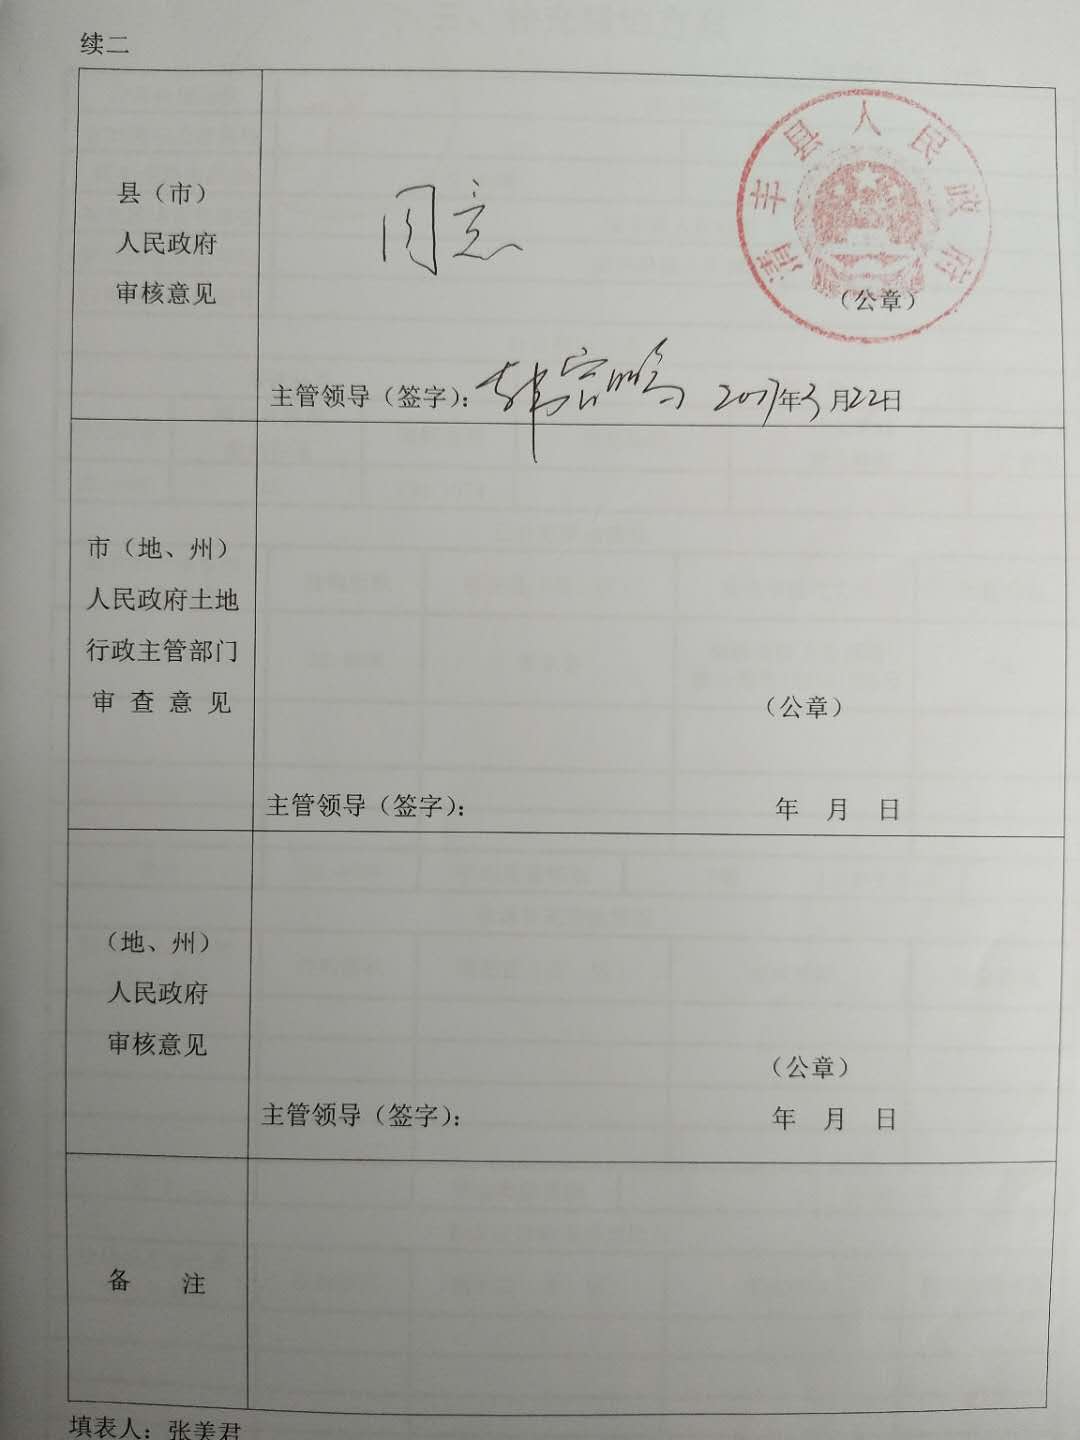 续二
县（市）
人民政府
审核意见
同意
清丰县人民政府
（公章）
主管领导（签字）： 2017年3月22日
市（地、州）
人民政府土地
行政主管部门
审查意见
（公章）
主管领导（签字）： 年 月 日
（地、州）
人民政府
审核意见
（公章）
主管领导（签字）： 年 月 日
备 注
填表人：张美君